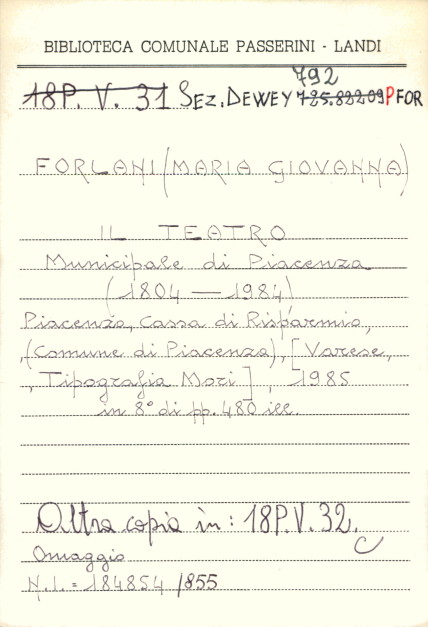 BIBLIOTECA COMUNALE PASSERINI - LANDI
792
18P. V. 31 SEZ. DEWEY 725.82209 P FOR
FORLANI (MARIA GIOVANNA)
IL TEATRO
Municipale di Piacenza
(1804 — 1984)
Piacenza, Cassa di Risparmio,
(Comune di Piacenza), [Varese,
Tipografia Mori], 1985
in 8° di pp. 480 ill.
Altra copia in: 18P.V. 32.
C
Omaggio
N.I. = 184854 /855